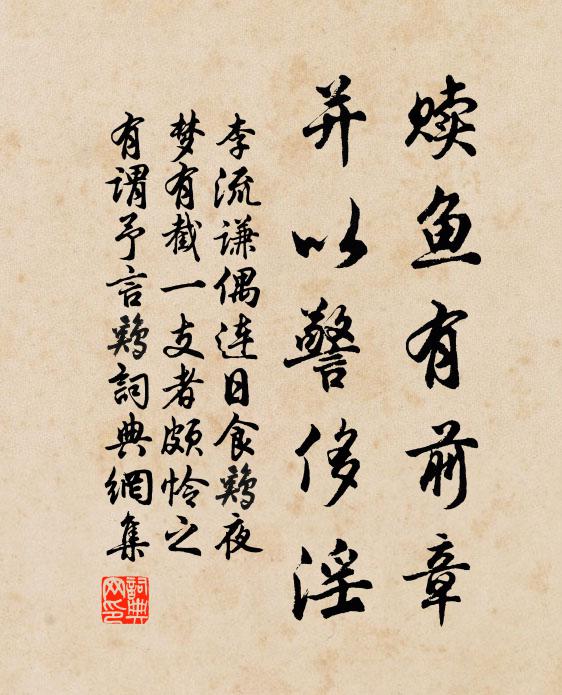 赎鱼有前章
并以警侈淫
李流谦偶连日食鸡夜
梦有截一支者颇怜之
有谓予言鸡詞典網集
詞典网印